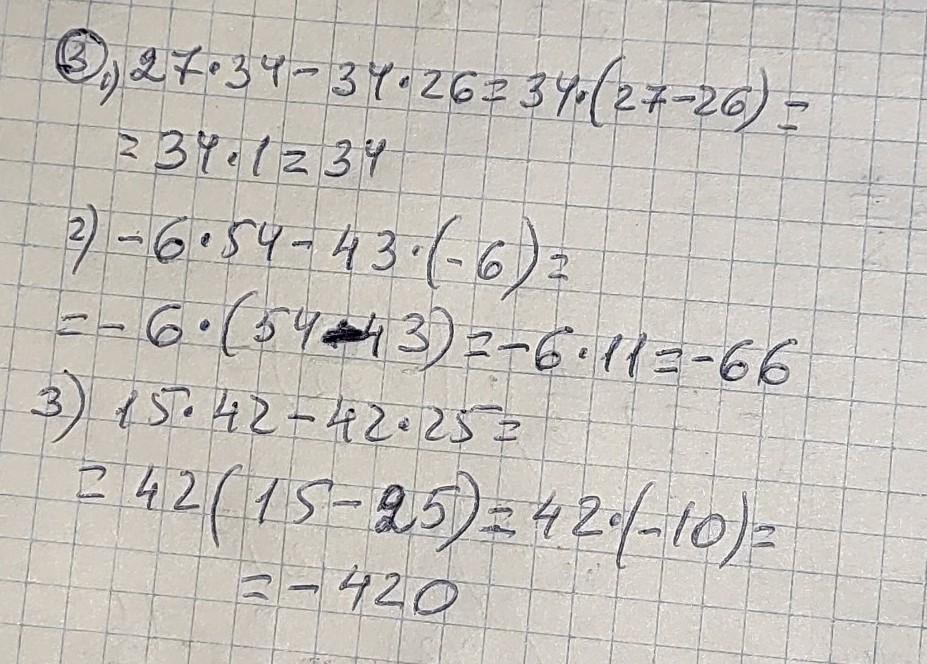 ③ 1) 27·34-34·26=34·(27-26)=
=34·1=34
2) -6·54-43·(-6)=
=-6·(54-43)=-6·11=-66
3) 15·42-42·25=
=42(15-25)=42·(-10)=
=-420